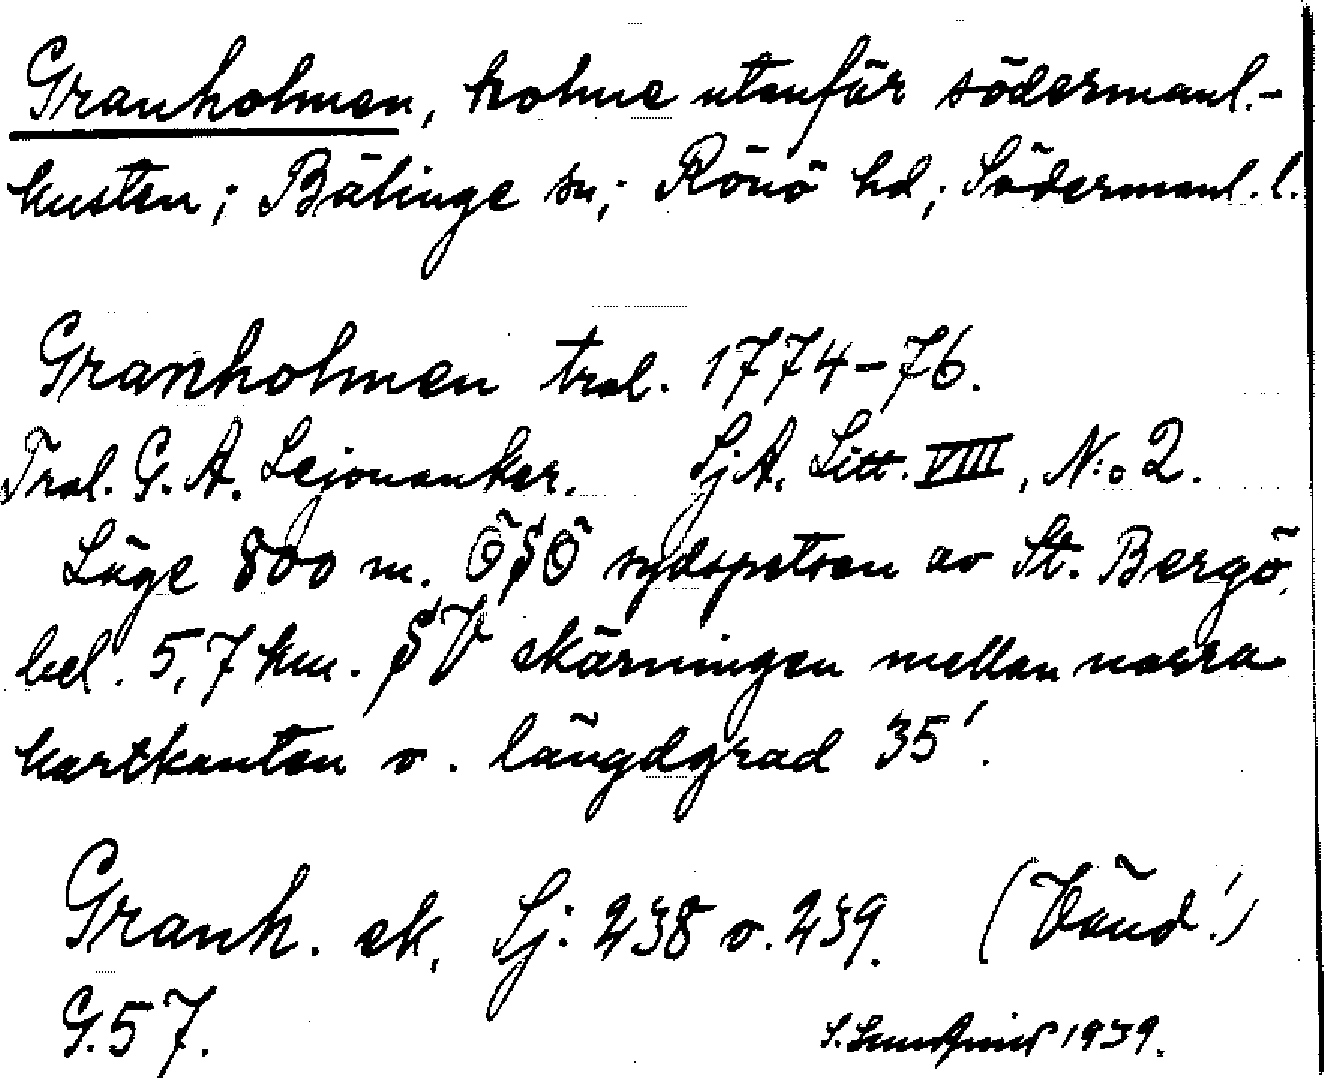 Granholmen, holme utanför södermanl.-
kusten; Bälinge sn; Rönö hd; Södermanl. l.
Granholmen tral. 1774-76.
Tral. G. A. Lejonanker. SjA. Litt. VIII, N:o 2.
Läge 800 m. ÖSÖ sydspetsen av St. Bergö,
bel. 5,7 km. SV skärningen mellan norra
kartkanten o. längdgrad 35'.
Granh. ek. Sj: 238 o. 239. (Vänd!)
G. 57. 1939.